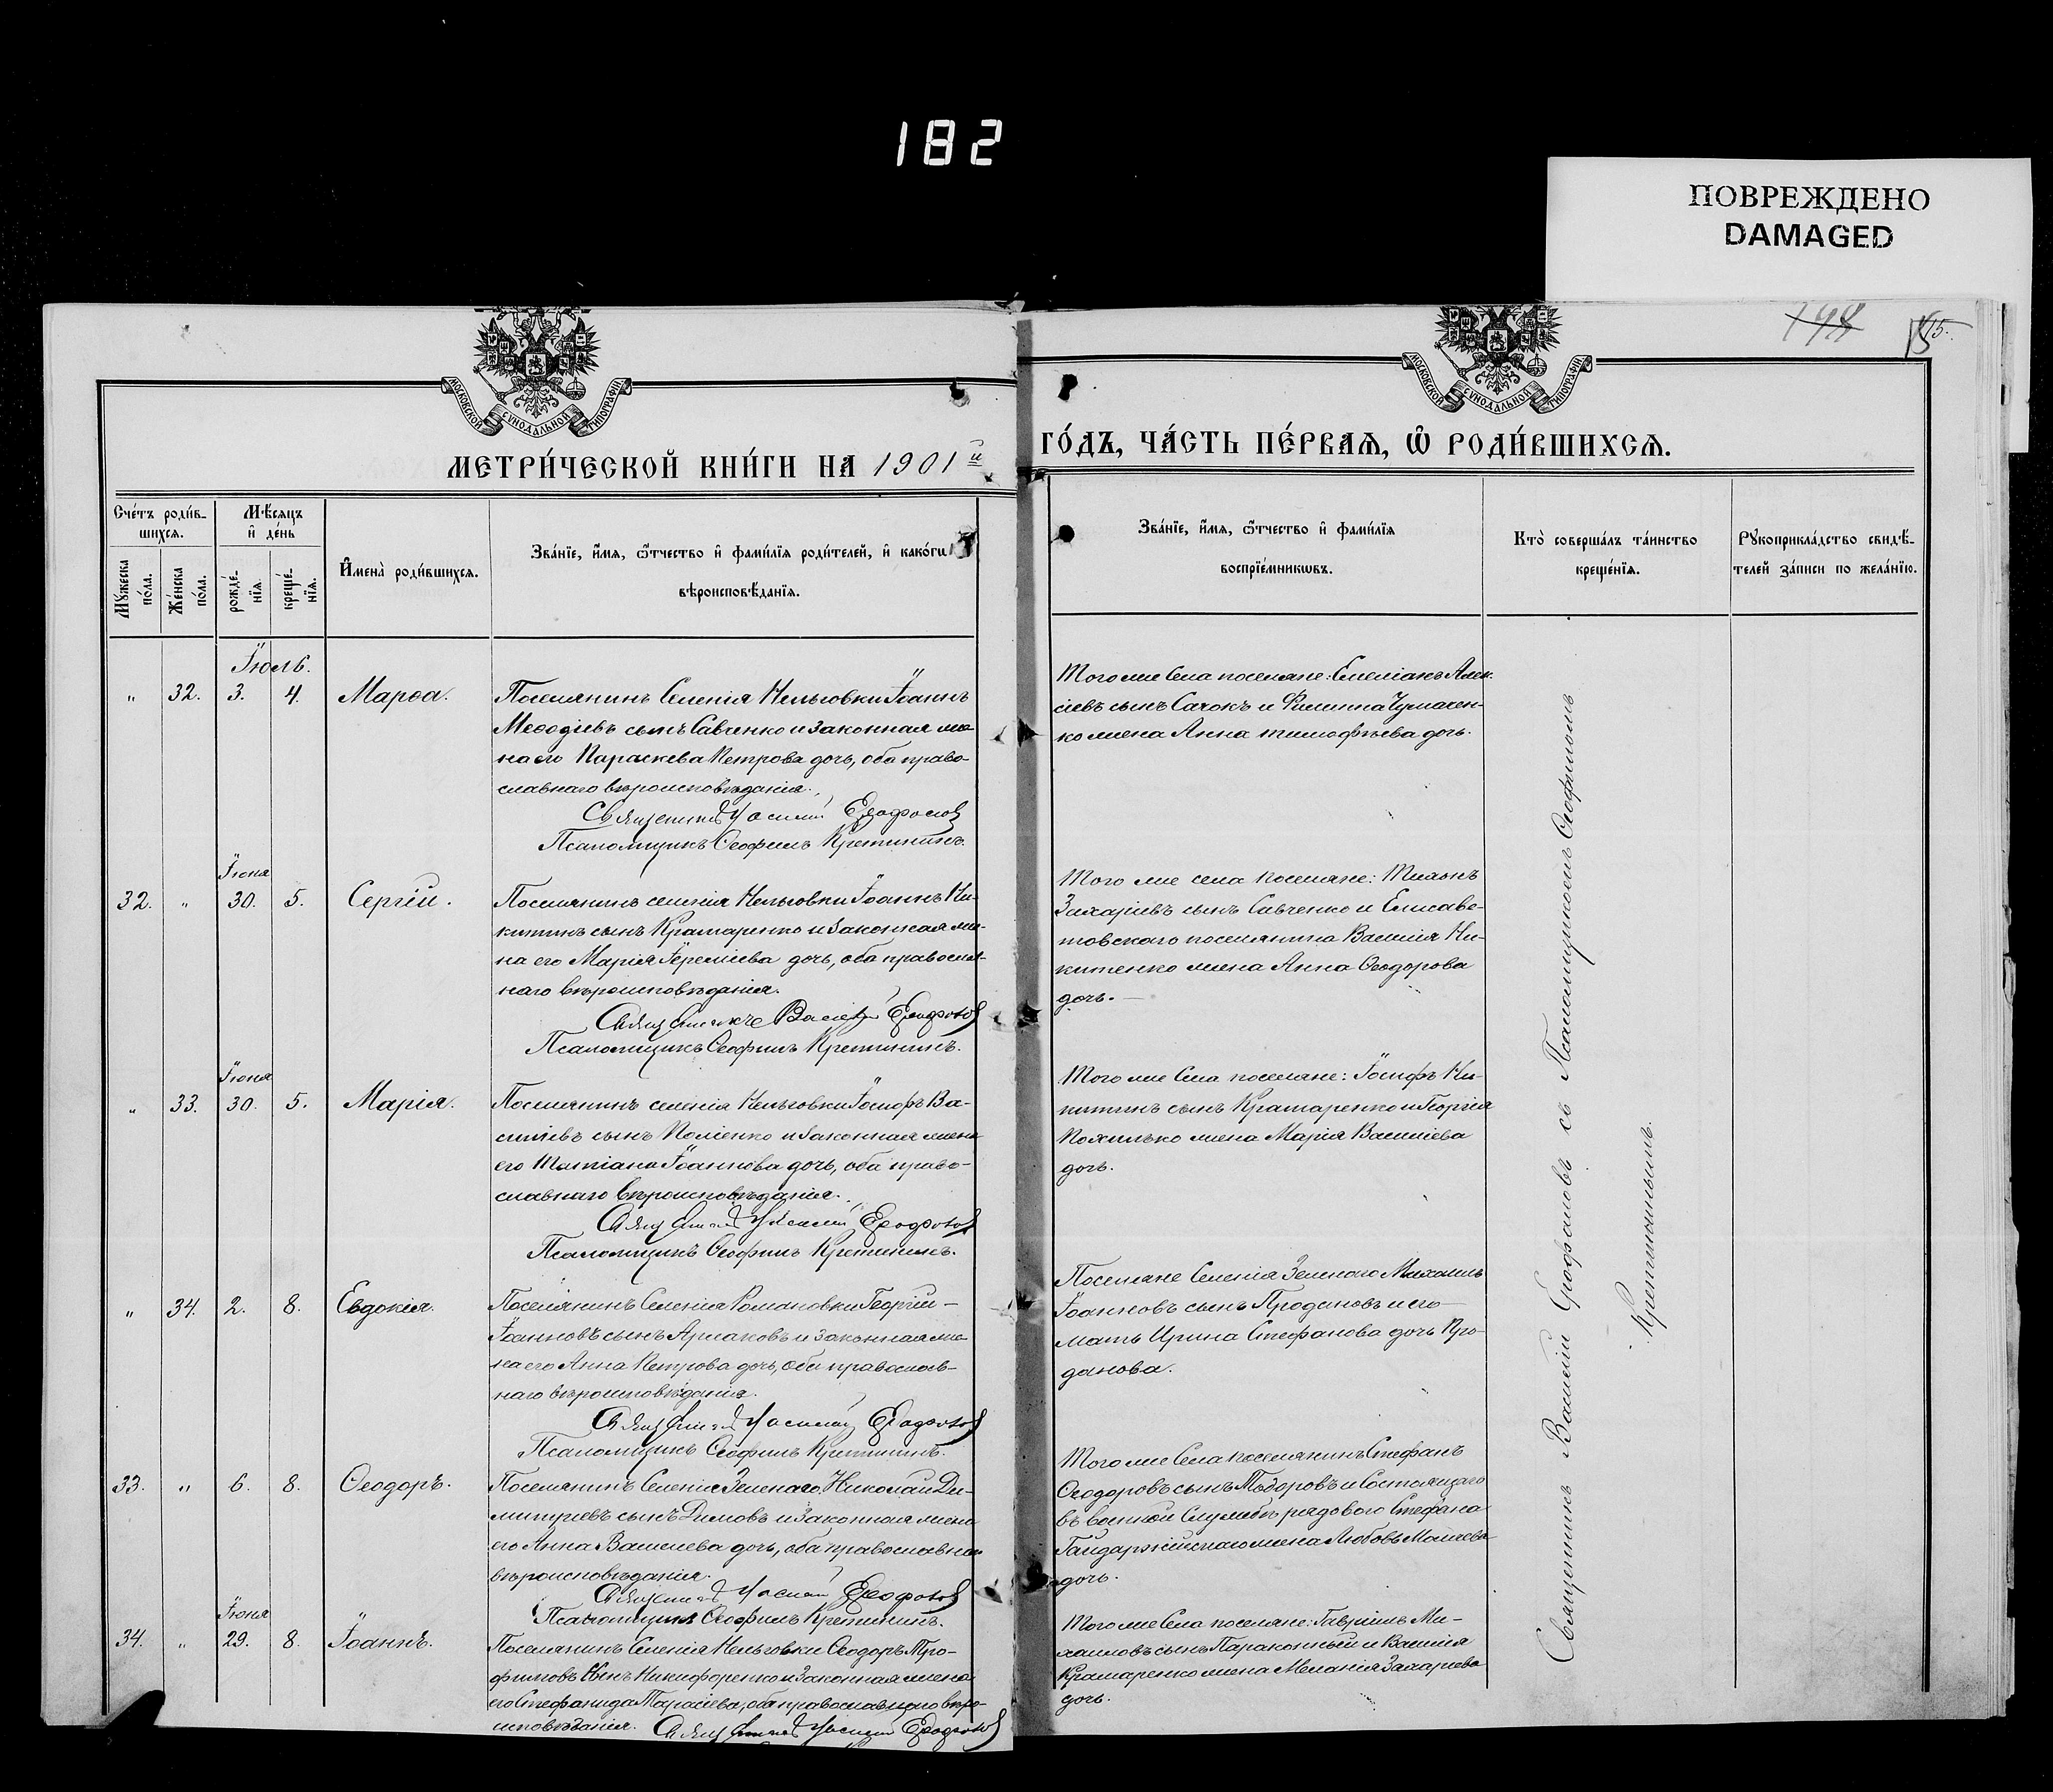 182
ПОВРЕЖДЕНО
DAMAGED
148
МОСКОВСКОЙ СѴНОДАЛЬНОЙ ТИПОГРАФІИ
МОСКОВСКОЙ СѴНОДАЛЬНОЙ ТИПОГРАФІИ
МЕТРИ́ЧЕСКОЙ КНИ́ГИ НА 1901й
ГО́ДЪ, ЧА́СТЬ ПЕ́РВАѦ, Ѽ РОДИ́ВШИХСѦ.
Сче́тъ роди́в-
шихсѧ.
Мꙋ́жеска по́ла.
Же́нска по́ла.
Мѣ́сѧцъ
и҆ де́нь
рожде́-нїѧ.
креще́-нїѧ.
И҆мена̀ роди́вшихсѧ.
Зва́нїе, и҆́мѧ, ѻ҆́тчество и҆ фами́лїѧ роди́телей, и҆ како́гѡ
вѣроисповѣ́данїѧ.
Зва́нїе, и҆́мѧ, ѻ҆́тчество и҆ фами́лїѧ
воспрїе́мникѡвъ.
Кто̀ соверша́лъ та́инство
креще́нїѧ.
Рꙋкоприкла́дство свидѣ́-
телей за́писи по жела́нїю.
Іюль.
" 32. 3. 4. Марѳа.
Поселянинъ Селенія Нельговки Іоаннъ
Меѳодіевъ сынъ Савченко и законная же-
на его Параскева Петрова дочь, оба право-
славнаго вѣроисповѣданія.
Священникъ Василій Ерофаловъ
Псаломщикъ Ѳеофилъ Кретининъ.
Того же Села поселяне: Емеліанъ Алек-
сіевъ сынъ Сачокъ и Филиппа Чумачен-
ко жена Анна Тимофѣева дочь.
Іюня
32. " 30. 5. Сергій.
Поселянинъ селенія Нельговки Іоаннъ Ни-
китинъ сынъ Крамаренко и законная же-
на его Марія Іереміева дочь, оба православ-
наго вѣроисповѣданія.
Священникъ Василій Ерофаловъ
Псаломщикъ Ѳеофилъ Кретининъ.
Того же села поселяне: Тихонъ
Захаріевъ сынъ Савченко и Елисаве-
товскаго поселянина Василія Ни-
китенко жена Анна Ѳеодорова
дочь. —
Іюня
" 33. 30. 5. Марія.
Поселянинъ селенія Нельговки Іосифъ Ва-
силіевъ сынъ Поліенко и законная жена
его Татіана Іоаннова дочь, оба право-
славнаго вѣроисповѣданія.
Священникъ Василій Ерофаловъ
Псаломщикъ Ѳеофилъ Кретининъ.
Того же Села поселяне: Іосифъ Ни-
китинъ сынъ Крамаренко и Георгія
Похилько жена Марія Василіева
дочь.
" 34. 2. 8. Евдокія.
Поселянинъ Селенія Романовки Георгій —
Іоанновъ сынъ Арнаковъ и законная же-
на его Анна Петрова дочь, оба православ-
наго вѣроисповѣданія.
Священникъ Василій Ерофаловъ
Псаломщикъ Ѳеофилъ Кретининъ.
Поселяне Селенія Зеленаго Михаилъ
Іоанновъ сынъ Продановъ и его —
мать Ирина Стефанова дочь Про-
данова.
33. " 6. 8. Ѳеодоръ.
Поселянинъ Селенія Зеленаго, Николай Ди-
митріевъ сынъ Димовъ и законная жена
его Анна Василіева дочь, оба православнаго
вѣроисповѣданія.
Священникъ Василій Ерофаловъ
Псаломщикъ Ѳеофилъ Кретининъ.
Того же Села поселянинъ Стефанъ
Ѳеодоровъ сынъ Тодоровъ и Состоящаго
въ военной Службѣ рядового Стефана
жена Любовь
дочь.
Іюня
34. " 29. 8. Іоаннъ.
Поселянинъ Селенія Нельговки Ѳеодоръ Тро-
фимовъ сынъ Никифоренко и законная жена
его Стефанида Тарасіева, оба православнаго вѣро-
исповѣданія. Священникъ Василій Ерофаловъ
Того же Села поселяне: Гавріилъ Ми-
хаиловъ сынъ Параконный и Василія
Крамаренко жена Меланія Захаріева
дочь.
Священникъ Василій Ерофаловъ съ Псаломщикомъ Ѳеофиломъ
Кретининымъ.